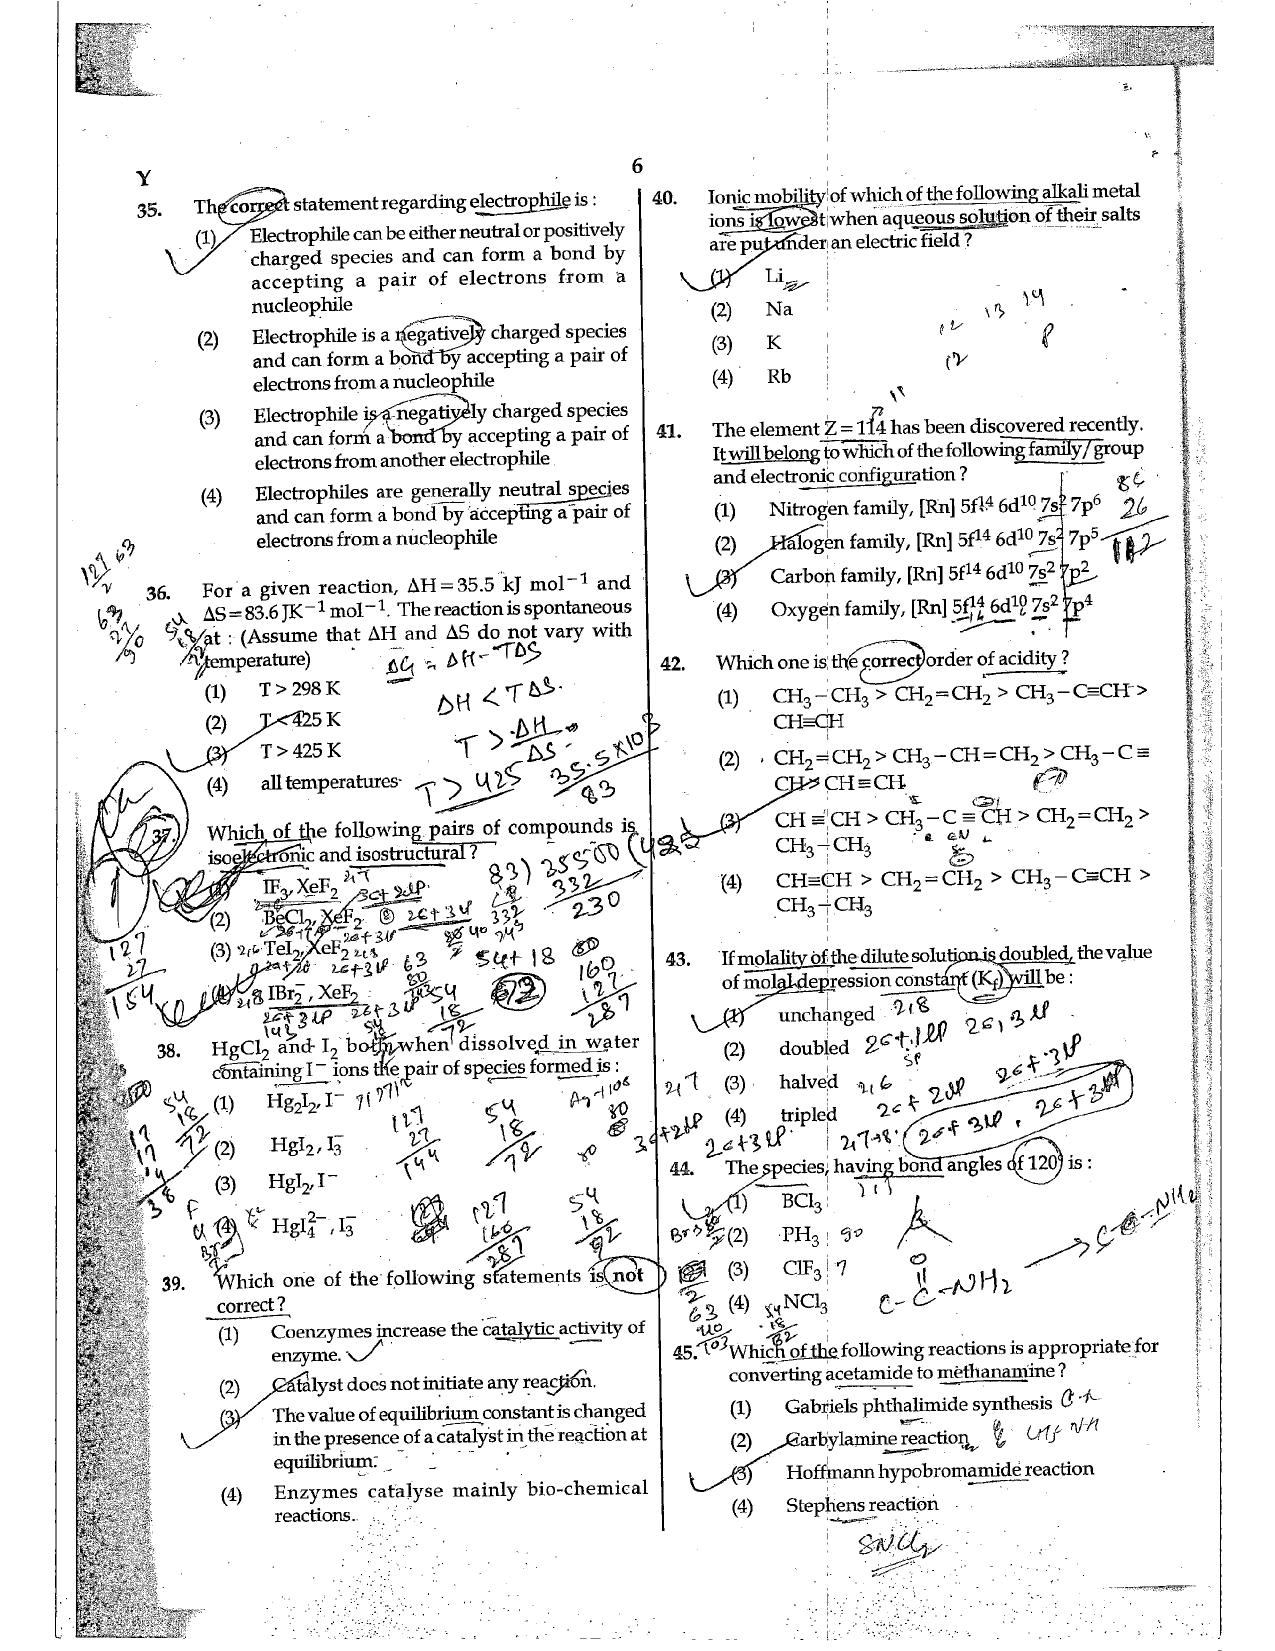 Y
6
35. The correct statement regarding electrophile is :
(1) Electrophile can be either neutral or positively
charged species and can form a bond by
accepting a pair of electrons from a
nucleophile
(2) Electrophile is a negatively charged species
and can form a bond by accepting a pair of
electrons from a nucleophile
(3) Electrophile is a negatively charged species
and can form a bond by accepting a pair of
electrons from another electrophile
(4) Electrophiles are generally neutral species
and can form a bond by accepting a pair of
electrons from a nucleophile
36. For a given reaction, ΔH = 35.5 kJ mol⁻¹ and
ΔS = 83.6 JK⁻¹ mol⁻¹. The reaction is spontaneous
at : (Assume that ΔH and ΔS do not vary with
temperature)
ΔG = ΔH - TΔS
(1) T > 298 K
ΔH < TΔS.
(2) T < 425 K
(3) T > 425 K
T > ΔH
ΔS
(4) all temperatures
T > 425
35.5 × 10³
83
37. Which of the following pairs of compounds is
isoelectronic and isostructural ?
IF₃, XeF₂
(2) BeCl₂, XeF₂
(3) TeI₂, XeF₂
IBr₂⁻, XeF₂
83) 25500 (425
332
230
38. HgCl₂ and I₂ both when dissolved in water
containing I⁻ ions the pair of species formed is :
(1) Hg₂I₂, I⁻
(2) HgI₂, I₃⁻
(3) HgI₂, I⁻
(4) HgI₄²⁻, I₃⁻
127
27
144
54
18
72
127
160
287
39. Which one of the following statements is not
correct ?
(1) Coenzymes increase the catalytic activity of
enzyme.
(2) Catalyst does not initiate any reaction.
(3) The value of equilibrium constant is changed
in the presence of a catalyst in the reaction at
equilibrium.
(4) Enzymes catalyse mainly bio-chemical
reactions.
40. Ionic mobility of which of the following alkali metal
ions is lowest when aqueous solution of their salts
are put under an electric field ?
(1) Li
(2) Na
(3) K
(4) Rb
12 13 14
41. The element Z = 114 has been discovered recently.
It will belong to which of the following family/group
and electronic configuration ?
(1) Nitrogen family, [Rn] 5f¹⁴ 6d¹⁰ 7s² 7p⁶
(2) Halogen family, [Rn] 5f¹⁴ 6d¹⁰ 7s² 7p⁵
(3) Carbon family, [Rn] 5f¹⁴ 6d¹⁰ 7s² 7p²
(4) Oxygen family, [Rn] 5f¹⁴ 6d¹⁰ 7s² 7p⁴
86
26
112
42. Which one is the correct order of acidity ?
(1) CH₃−CH₃ > CH₂=CH₂ > CH₃−C≡CH >
CH≡CH
(2) CH₂=CH₂ > CH₃−CH=CH₂ > CH₃−C≡
CH > CH≡CH
(3) CH≡CH > CH₃−C≡CH > CH₂=CH₂ >
CH₃−CH₃
(4) CH≡CH > CH₂=CH₂ > CH₃−C≡CH >
CH₃−CH₃
43. If molality of the dilute solution is doubled, the value
of molal depression constant (Kf) will be :
(1) unchanged
(2) doubled
(3) halved
(4) tripled
44. The species, having bond angles of 120° is :
(1) BCl₃
(2) PH₃ 90
(3) ClF₃ 7
(4) NCl₃
45. Which of the following reactions is appropriate for
converting acetamide to methanamine ?
(1) Gabriels phthalimide synthesis
(2) Carbylamine reaction
(3) Hoffmann hypobromamide reaction
(4) Stephens reaction
SnCl₂